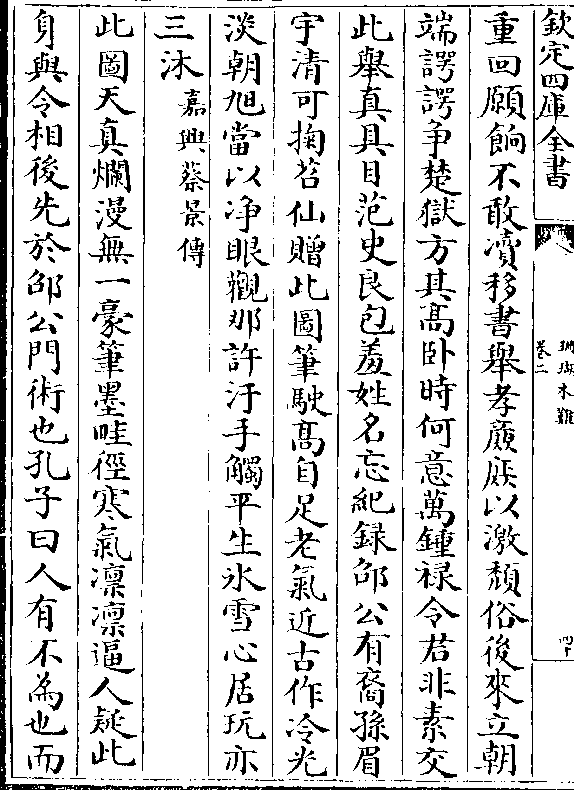 欽定四庫全書
珊瑚木難
卷二
四十
重回願餉不敢凟移書舉孝亷庻以激頽俗後來立朝
端諤諤爭楚獄方其髙卧時何意萬鍾禄令君非素交
此舉真具目范史良包羞姓名忘紀録邵公有裔孫眉
宇清可掬苕仙贈此圖筆駛髙自足老氣近古作冷光
淡朝旭當以净眼觀那許汙手觸平生氷雪心居玩亦
三沐
嘉興蔡景傳
此圖天真爛漫無一豪筆墨畦徑寒氣凛凛逼人疑此
身與令相後先於邵公門術也孔子曰人有不為也而